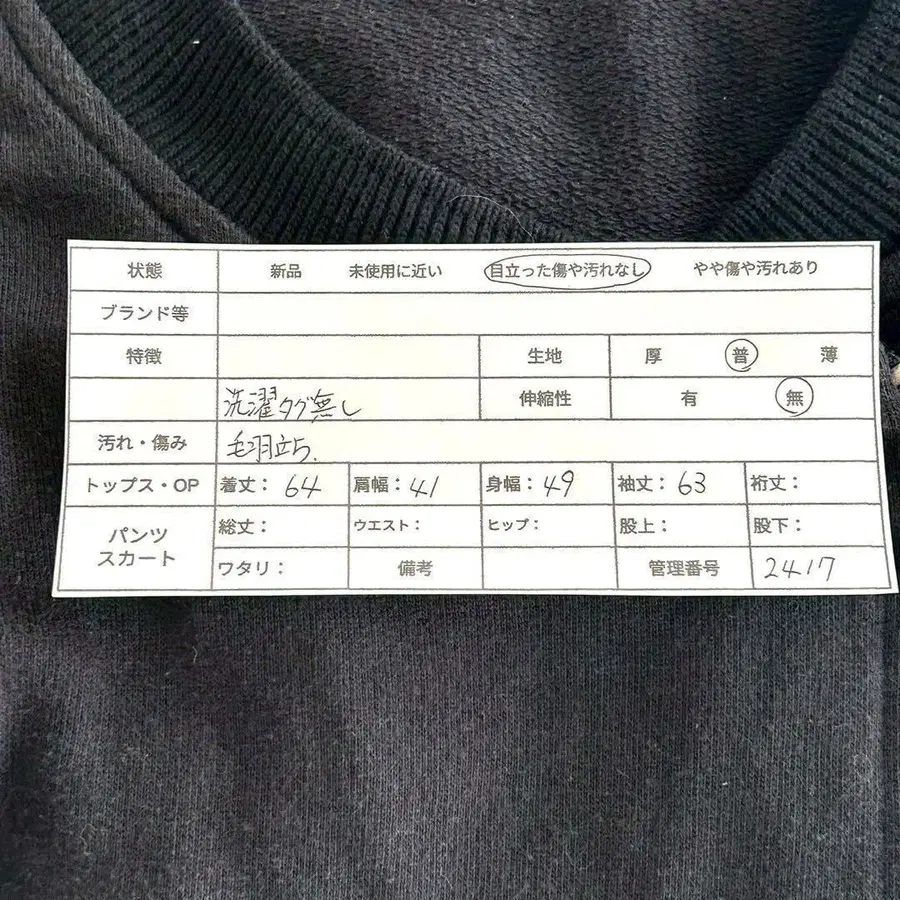 状態 新品 未使用に近い 目立った傷や汚れなし やや傷や汚れあり
ブランド等
特徴 生地 厚 普 薄
洗濯タグ無し 伸縮性 有 無
汚れ・傷み 毛羽立ち.
トップス・OP 着丈: 64 肩幅: 41 身幅: 49 袖丈: 63 裄丈:
パンツ スカート 総丈: ウエスト: ヒップ: 股上: 股下:
ワタリ: 備考 管理番号 2417